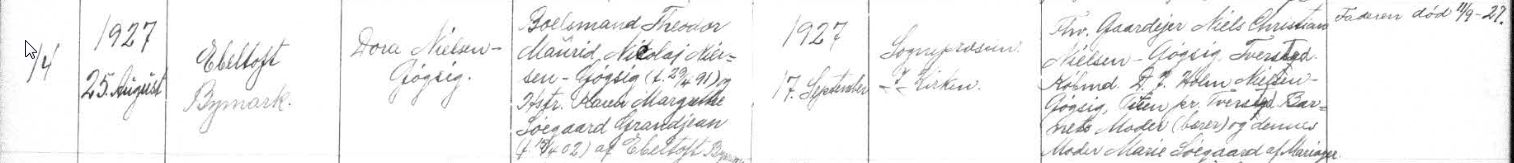 14
1927
25. August
Ebeltoft
Bymark.
Dora Nielsen-
Gøgsig.
Boelsmand Theodor
Maurid Nicolaj Niel-
sen-Gøgsig (f. 29/4 91) og
Hstr. Karen Margrethe
Søegaard Grandjean
02) af Ebeltoft
1927
17. September
Sognepræsten.
I Kirken.
Fhv. Gaardejer Niels Christian
Nielsen-Gøgsig, Tversted.
Købmd. Holm Nielsen-
Gøgsig, pr. Tversted, Bar-
nets Moder (bærer) og dennes
Moder Marie Søegaard af Mariager
Faderen død 11/9-27.